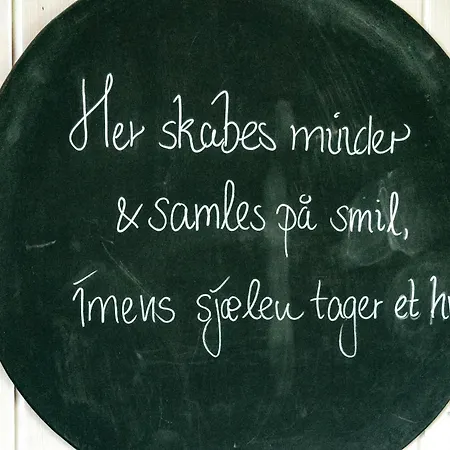 Her skabes minder
& samles på smil,
imens sjælen tager et